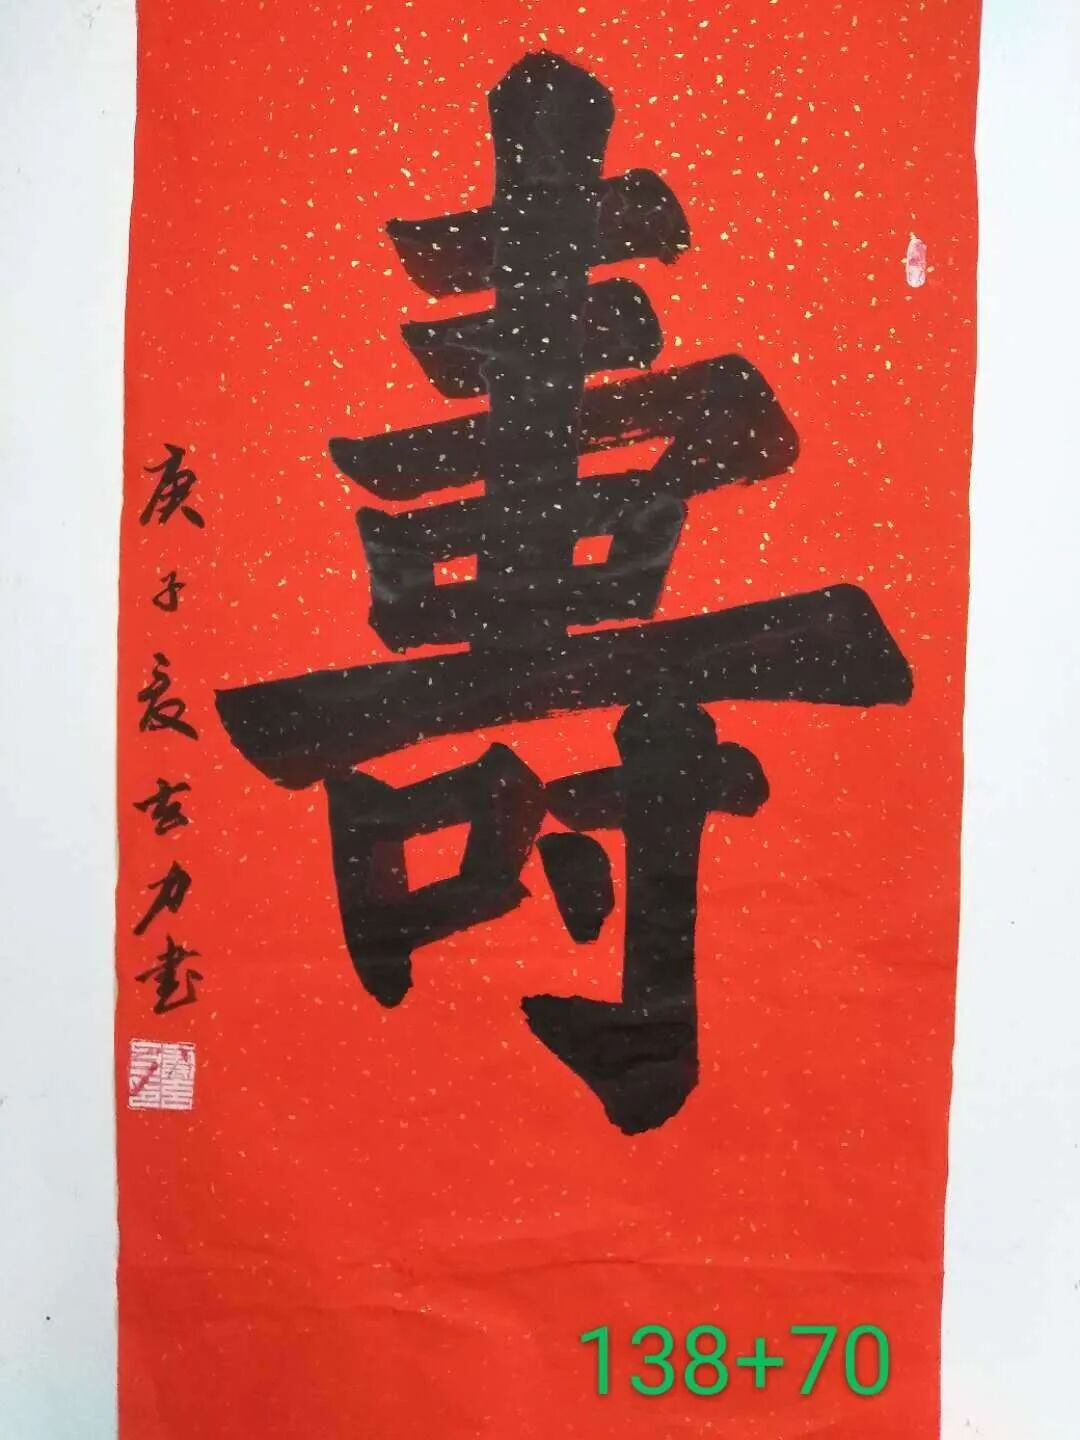 壽
庚子夏玄力书
138+70